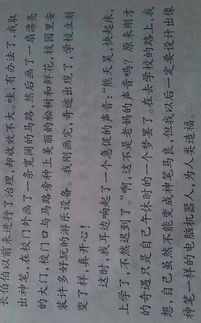 长伯伯以前来进行了治理，却收效不大。哇，有办法了，我取
出神笔，在校门外画了一条宽阔的马路，然后画了一个漂亮
的大门，校门口与马路旁种上美丽的松树和鲜花，校园里安
装许多好玩的游乐设备。我刚画完，奇迹出现了，学校立刻
变了样，真开心！
这时，我耳边响起了一个急促的声音：“熊天昊，快起床，
上学了，不然迟到了。”啊，这不是老妈的声音吗？原来刚才
的奇遇只是自己午休时的一个梦罢了。在去学校的路上，我
想，自己虽然不能变成神笔马良，但我以后一定要设计出像
神笔一样的电脑机器人，为人类造福。